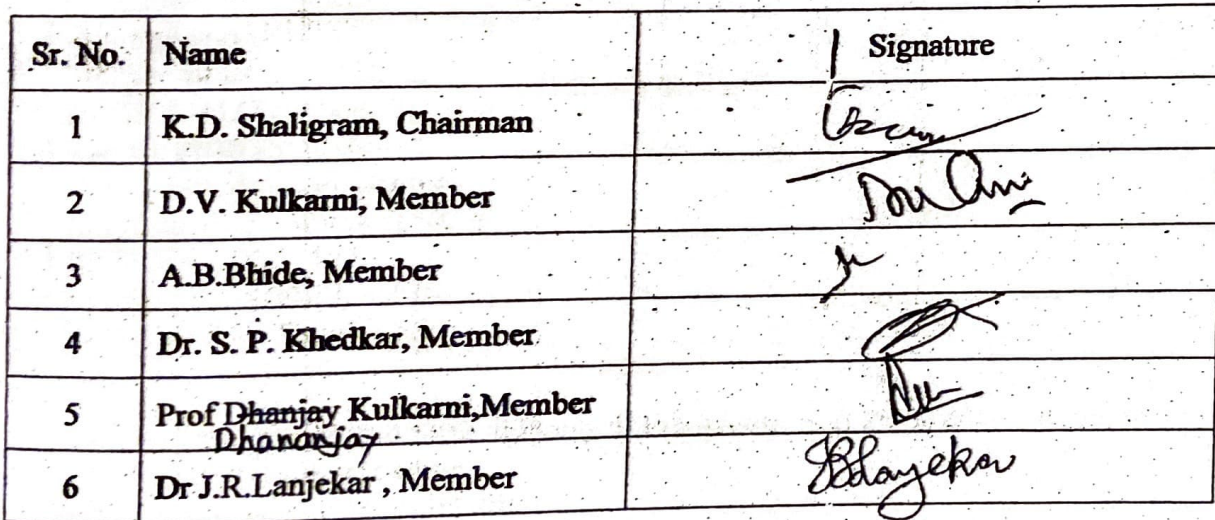 Sr. No. Name Signature
1 K.D. Shaligram, Chairman
2 D.V. Kulkarni, Member
3 A.B.Bhide, Member
4 Dr. S. P. Khedkar, Member
5 Prof Dhanjay Kulkarni,Member
Dhananjay
6 Dr J.R.Lanjekar , Member